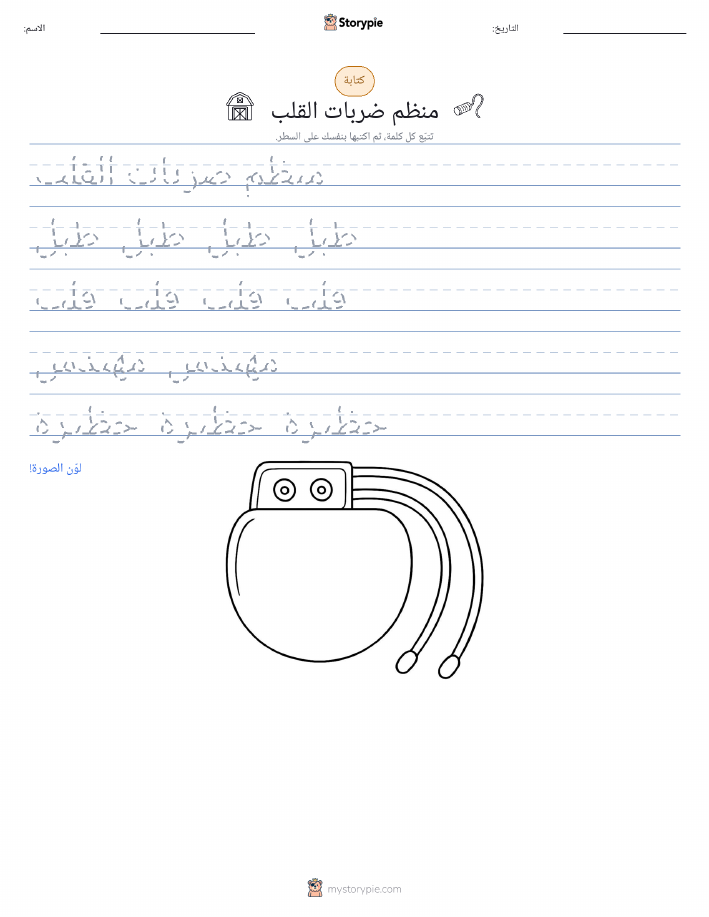 الاسم: Storypie التاريخ:
كتابة
منظم ضربات القلب
تتبّع كل كلمة، ثم اكتبها بنفسك على السطر.
منظم ضربات القلب
طبل طبل طبل طبل
قلب قلب قلب قلب
مهندس مهندس
حظيرة حظيرة حظيرة
لوّن الصورة!
mystorypie.com